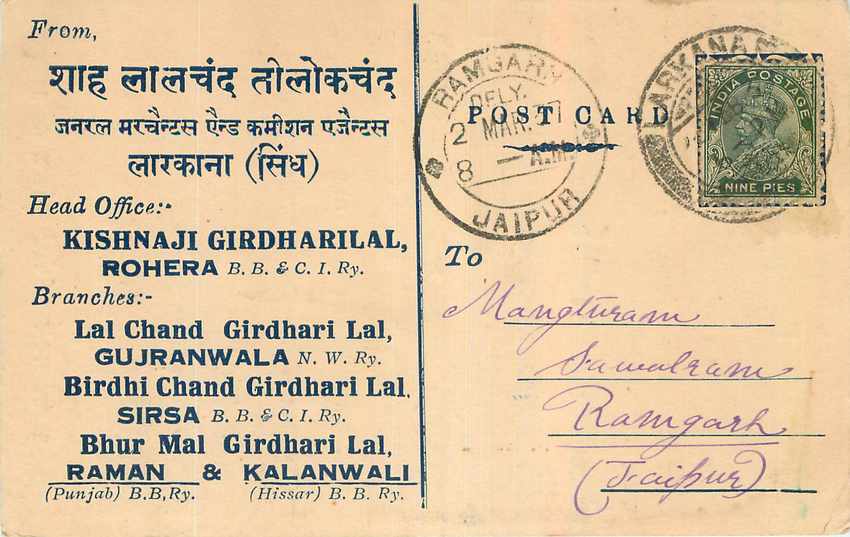 From,
शाह लालचंद तीलोकचंद
जनरल मरचैन्टस ऐन्ड कमीशन एजैन्टस
लारकाना (सिंध)
Head Office:-
KISHNAJI GIRDHARILAL,
ROHERA B. B. & C. I. Ry.
Branches:-
Lal Chand Girdhari Lal,
GUJRANWALA N. W. Ry.
Birdhi Chand Girdhari Lal,
SIRSA B. B. & C. I. Ry.
Bhur Mal Girdhari Lal,
RAMAN & KALANWALI
(Punjab) B.B,Ry. (Hissar) B. B. Ry.
POST CARD
RAMGARH
DELY.
2 MAR. 37
8 — A.M.
JAIPUR
LARKANA
INDIA POSTAGE
NINE PIES
To
Mangturam
Sawalram
Ramgarh
(Jaipur)